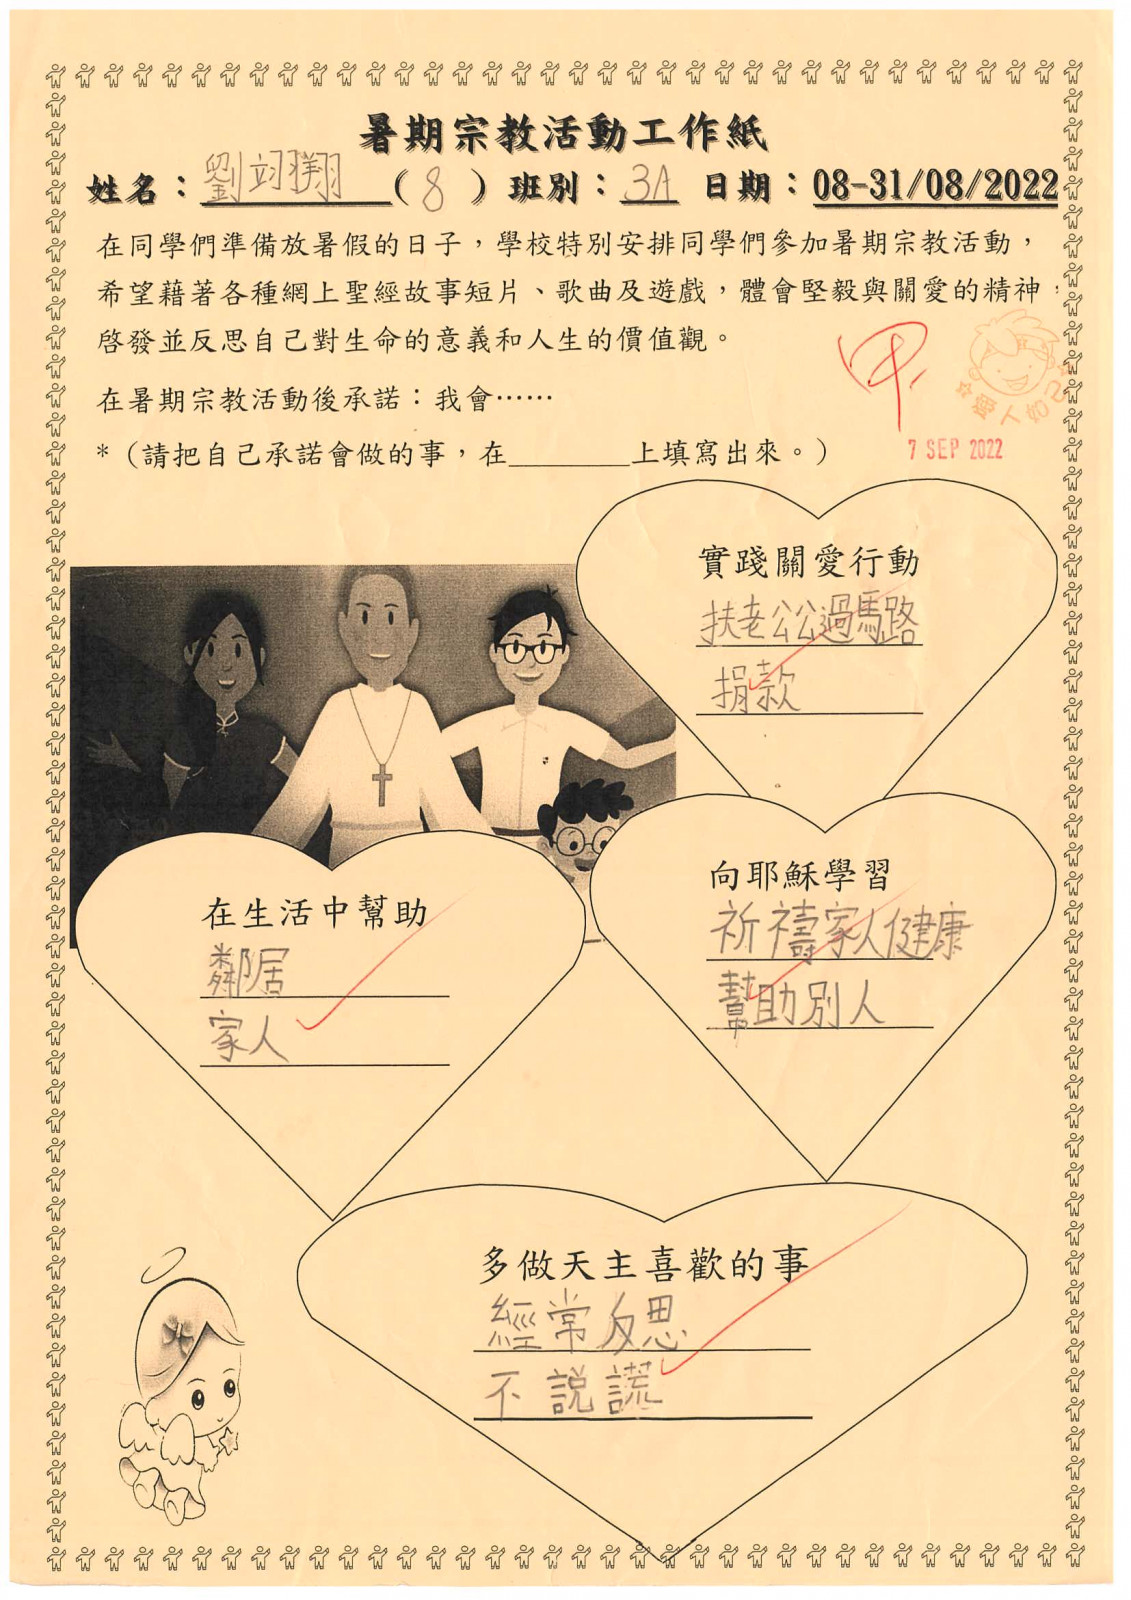 暑期宗教活動工作紙
姓名：劉翊翔（8）班別：3A 日期：08-31/08/2022
在同學們準備放暑假的日子，學校特別安排同學們參加暑期宗教活動，
希望藉著各種網上聖經故事短片、歌曲及遊戲，體會堅毅與關愛的精神，
啓發並反思自己對生命的意義和人生的價值觀。
甲
愛人如己
在暑期宗教活動後承諾：我會……
*（請把自己承諾會做的事，在________上填寫出來。）
7 SEP 2022
實踐關愛行動
扶老公公過馬路
捐款
在生活中幫助
鄰居
家人
向耶穌學習
祈禱家人健康
幫助別人
多做天主喜歡的事
經常反思
不說謊